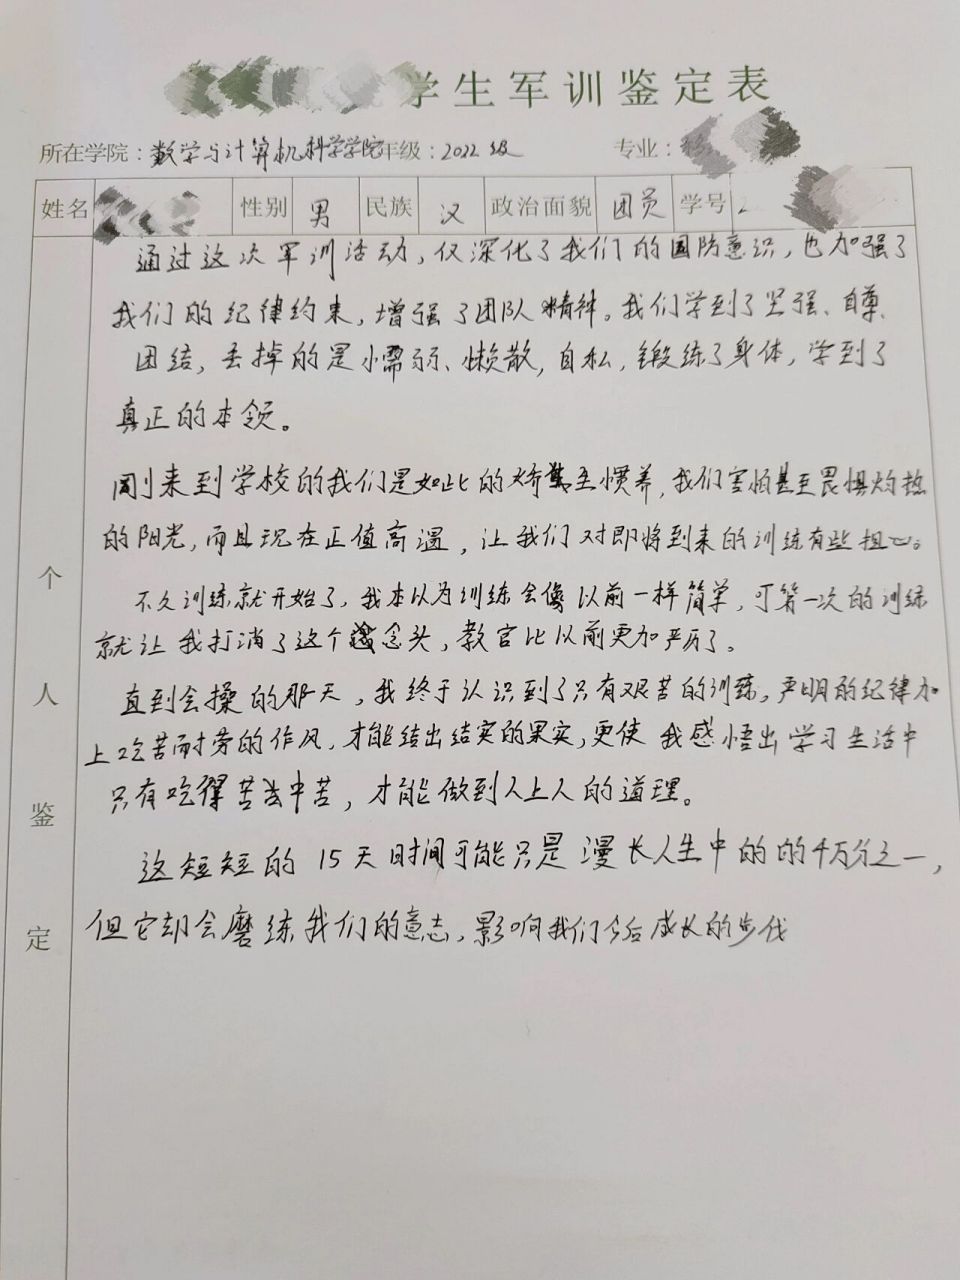 学生军训鉴定表
所在学院：数学与计算机科学学院 年级：2022级 专业：
姓名 性别 男 民族 汉 政治面貌 团员 学号 2
通过这次军训活动，仅深化了我们的国防意识，也加强了
我们的纪律约束，增强了团队精神。我们学到了坚强、自尊、
团结，丢掉的是懦弱、懒散，自私，锻练了身体，学到了
真正的本领。
刚来到学校的我们是如此的娇生惯养，我们害怕甚至畏惧灼热
的阳光，而且现在正值高温，让我们对即将到来的训练有些担心。
不久训练就开始了，我本以为训练会像以前一样简单，可第一次的训练
就让我打消了这个念头，教官比以前更加严厉了。
直到会操的那天，我终于认识到了只有艰苦的训练，严明的纪律加
上吃苦耐劳的作风，才能结出结实的果实，更使我感悟出学习生活中
只有吃得苦中苦，才能做到人上人的道理。
这短短的15天时间可能只是漫长人生中的的千万分之一，
但它却会磨练我们的意志，影响我们今后成长的步伐
个人鉴定